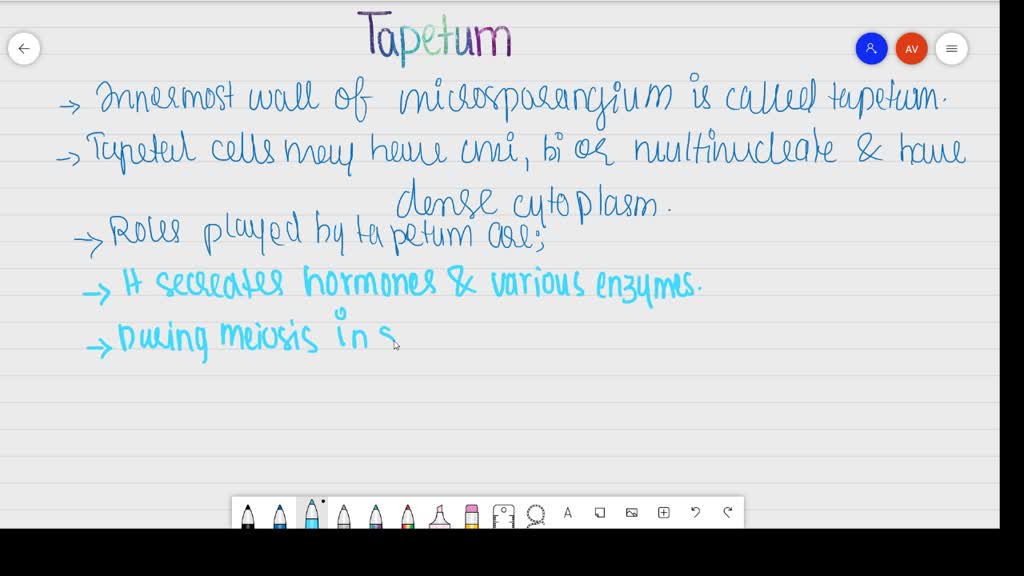 Tapetum
AV
→ Innermost wall of microsporangium is called tapetum.
→ Tapetal cells may have uni, bi or multinucleate & have
dense cytoplasm.
→ Roles played by tapetum are;
→ It secreates hormones & various enzymes.
→ During meiosis in s
A